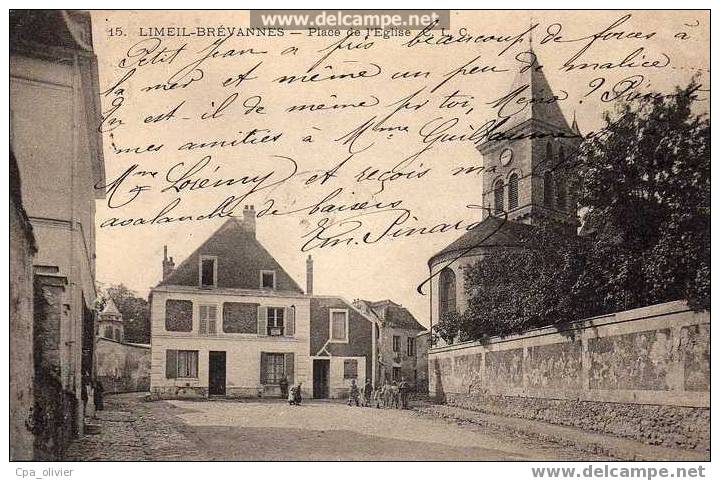 www.delcampe.net
15. LIMEIL-BRÉVANNES - Place de l'Eglise C. L. C.
Petit Jean a pris beaucoup de forces à
la mer et même un peu de malice.
En est-il de même pr toi, Meno? Présente
mes amitiés à Mme Guillaume
Mme Lorémy et reçois ma
avalanche de baisers
Em. Pinard
Cpa_olivier
http://www.delcampe.net